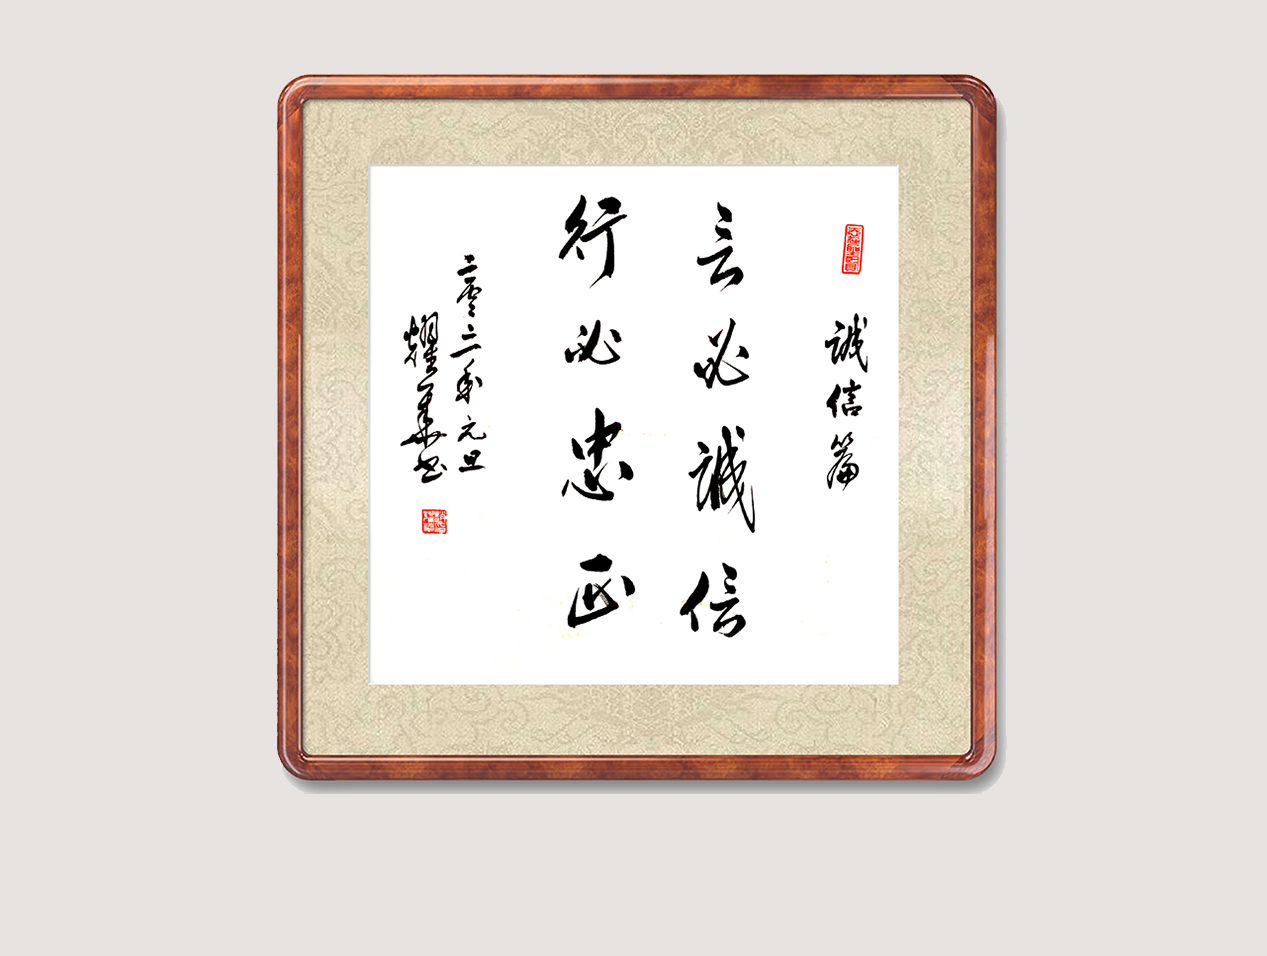 誠信篇
言必誠信
行必忠正
二零二一年元旦
耀華書